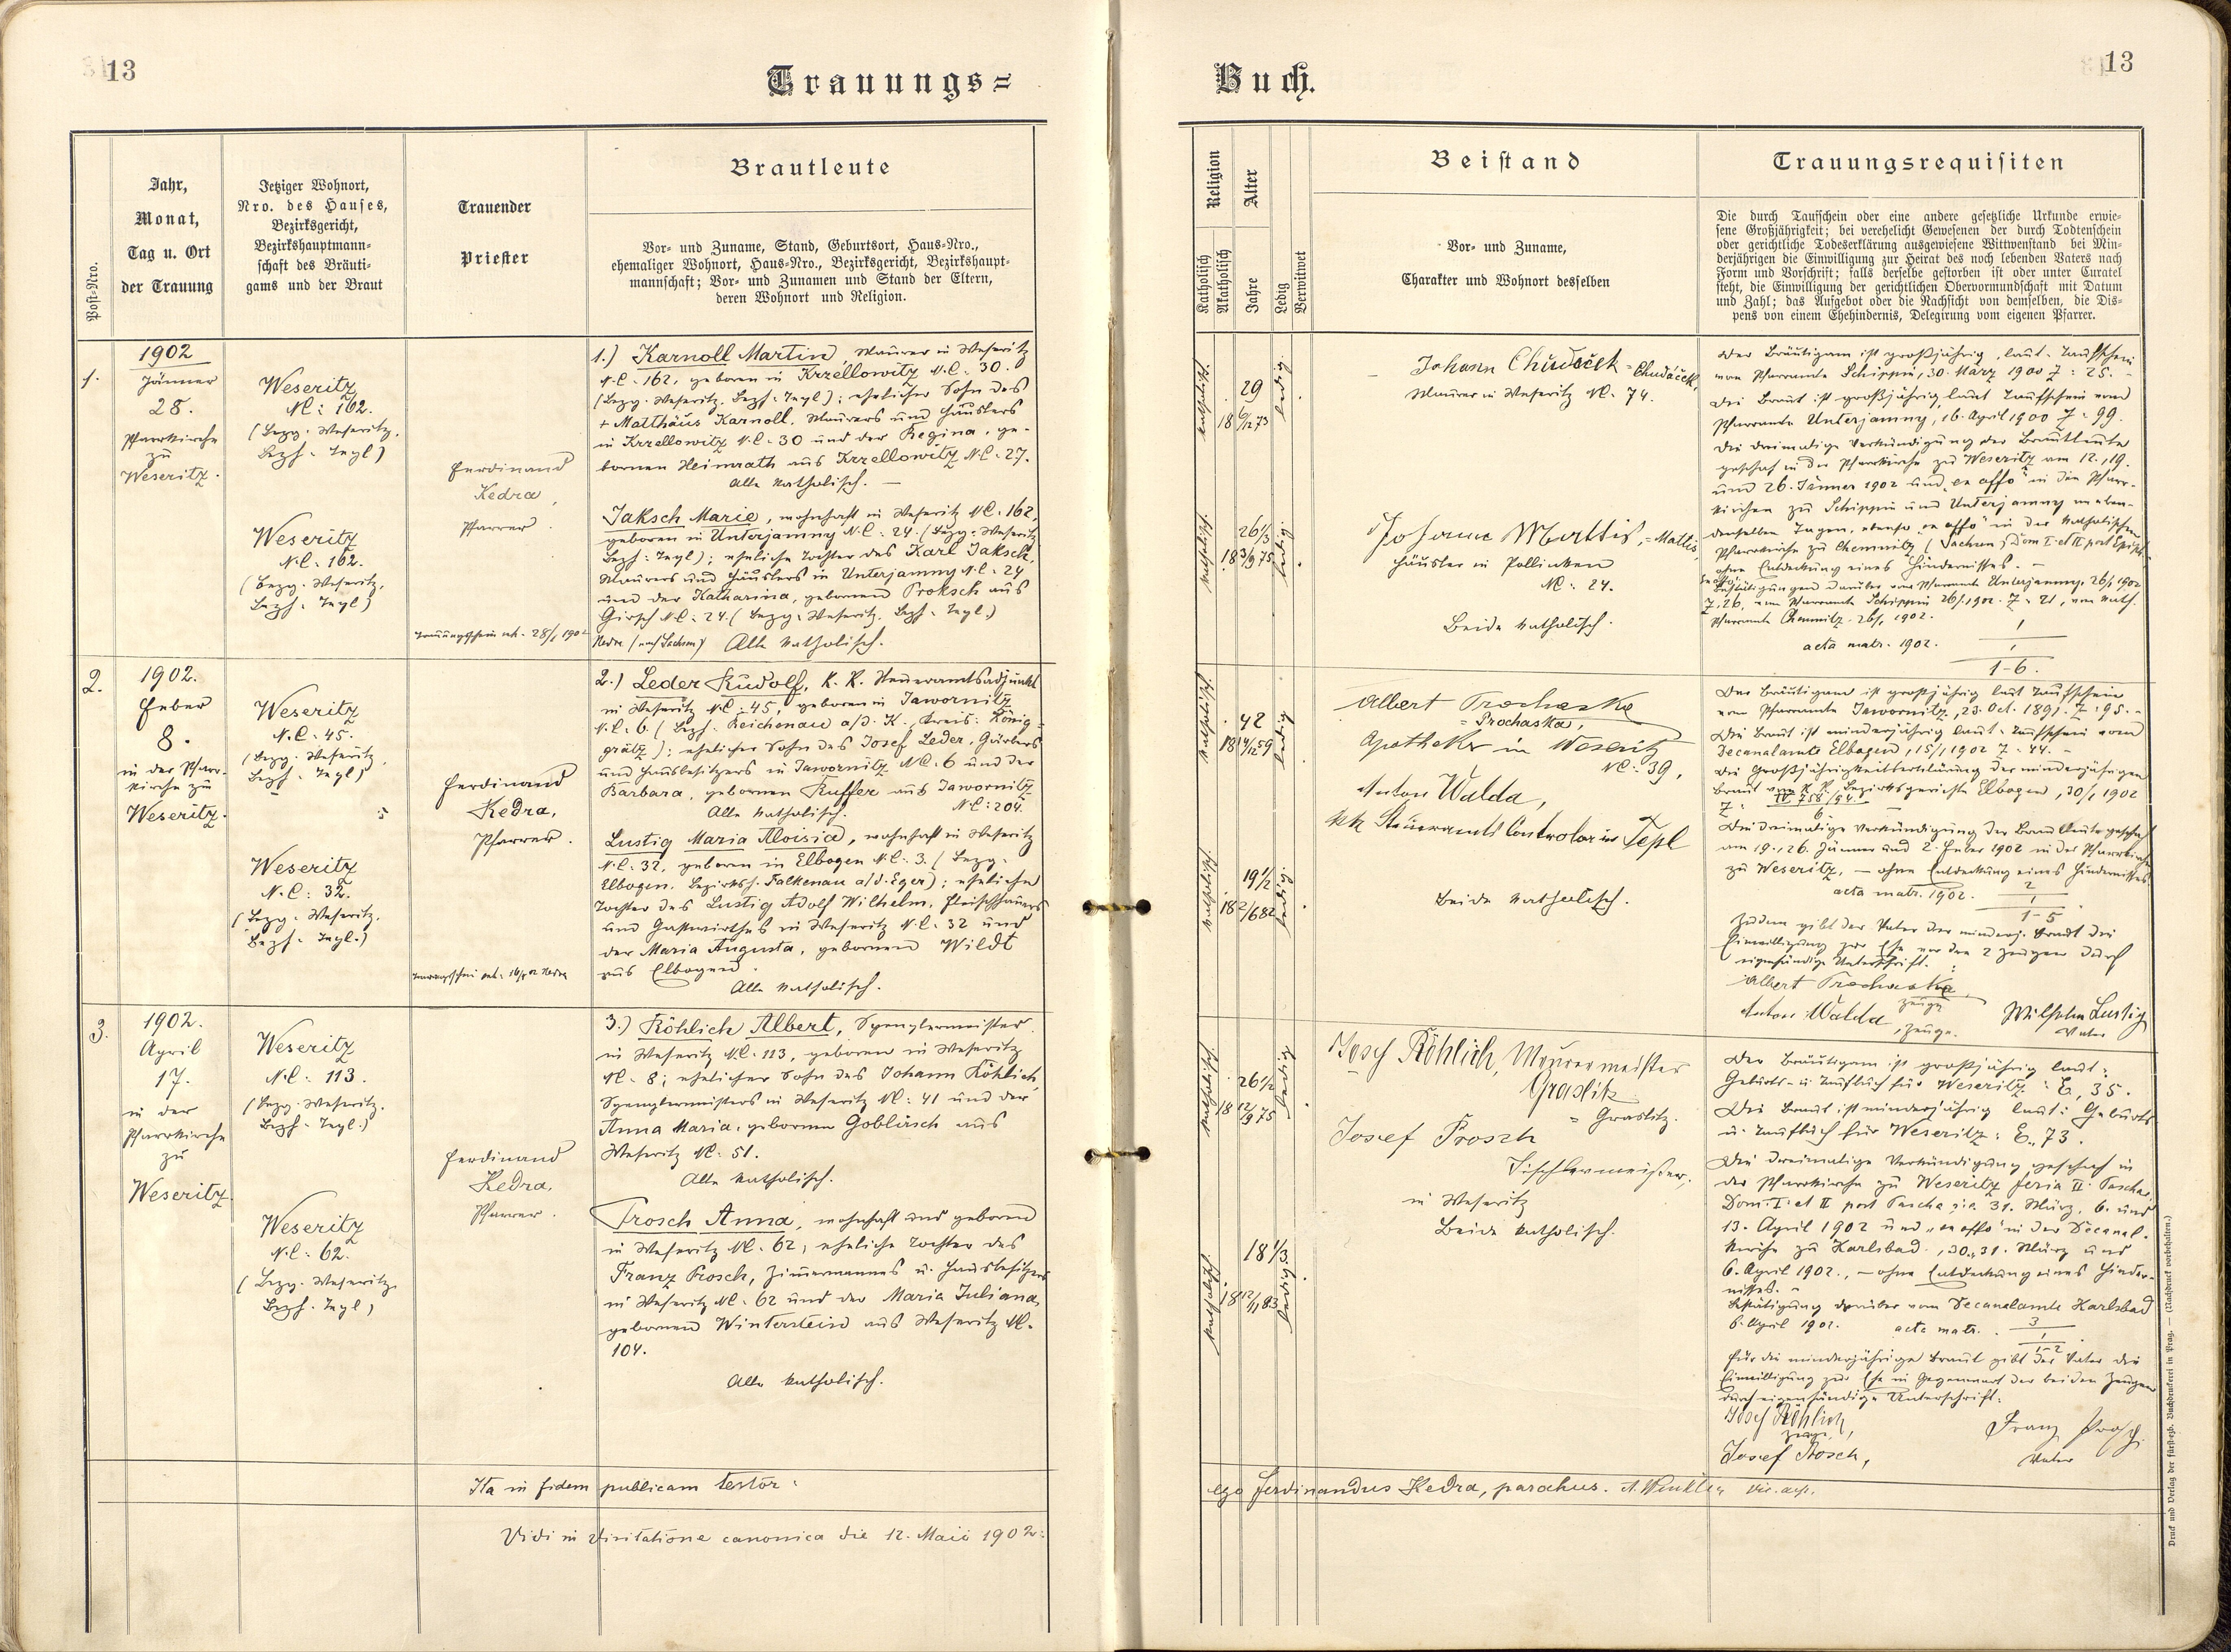 13
Trauungs=
Post=Nro.
Jahr,
Monat,
Tag u. Ort
der Trauung
Jetziger Wohnort,
Nro. des Hauses,
Bezirksgericht,
Bezirkshauptmann-
schaft des Bräuti-
gams und der Braut
Trauender
Priester
Brautleute
Vor- und Zuname, Stand, Geburtsort, Haus=Nro.,
ehemaliger Wohnort, Haus=Nro., Bezirksgericht, Bezirkshaupt-
mannschaft; Vor- und Zunamen und Stand der Eltern,
deren Wohnort und Religion.
1.
1902
Jänner
28.
Pfarrkirche
zu
Weseritz.
Weseritz
N.C: 162.
(Bezg. Weseritz,
Bezh. Tepl)
Weseritz
N.C: 162.
(Bezg. Weseritz,
Bezh. Tepl)
Ferdinand
Kedra,
Pfarrer.
Trauungsschein exh. 28/1 1902
Kedra (nach Sachsen)
1.) Karnoll Martin, Maurer in Weseritz
N.C. 162, geboren in Krzellowitz N.C. 30.
(Bezg. Weseritz, Bezh. Tepl); ehelicher Sohn des
+ Matthäus Karnoll, Maurers und Häuslers
in Krzellowitz N.C. 30 und der Regina, ge-
bornen Heimrath aus Krzellowitz N.C. 27.
Alle katholisch. —
Jaksch Marie, wohnhaft in Weseritz N.C. 162,
geboren in Unterjamny N.C. 24 (Bezg. Weseritz
Bezh. Tepl); eheliche Tochter des Karl Jaksch,
Maurers und Häuslers in Unterjamny N.C. 24
und der Katharina, gebornen Proksch aus
Girsch N.C. 24. (Bezg. Weseritz, Bezh. Tepl.)
Alle katholisch.
2.
1902.
Feber
8.
in der Pfarr-
kirche zu
Weseritz.
Weseritz
N.C. 45.
(Bezg. Weseritz,
Bezh. Tepl)
Weseritz
N.C: 32.
(Bezg. Weseritz,
Bezh. Tepl.)
Ferdinand
Kedra,
Pfarrer.
2.) Leder Rudolf, K. K. Steueramtsadjunkt
in Weseritz N.C. 45, geboren in Jawornitz
N.C. 6 (Bezh. Reichenau a/d. K., Kreis: König-
grätz); ehelicher Sohn des Josef Leder, Gärbers
und Hausbesitzers in Jawornitz N.C. 6 und der
Barbara, gebornen Kuffer aus Jawornitz
N.C: 204.
Alle katholisch.
Lustig Maria Aloisia, wohnhaft in Weseritz
N.C. 32, geboren in Elbogen N.C. 3. (Bezg.
Elbogen, Bezirksh. Falkenau a/d. Eger); eheliche
Tochter des Lustig Adolf Wilhelm, Fleischhauers
und Gastwirthes in Weseritz N.C. 32 und
der Maria Augusta, gebornene Wildt
aus Elbogen.
Alle katholisch.
3.
1902.
April
17.
in der
Pfarrkirche
zu
Weseritz.
Weseritz
N.C: 113.
(Bezg. Weseritz.
Bezh. Tepl.)
Weseritz
N.C: 62.
(Bezg. Weseritz
Bezh. Tepl)
Ferdinand
Kedra,
Pfarrer.
3.) Köhlich Albert, Spenglermeister
in Weseritz N.C. 113, geboren in Weseritz
NC. 8; ehelicher Sohn des Johann Köhlich,
Spenglermeisters in Weseritz NC. 41 und der
Anna Maria, gebornen Goblirsch aus
Weseritz NC. 51.
Alle katholisch.
Prosch Anna, wohnhaft und geboren
in Weseritz NC. 62, eheliche Tochter des
Franz Prosch, Zimmermannes u. Hausbesitzers
in Weseritz NC. 62 und der Maria Juliana,
gebornen Winterstein aus Weseritz NC.
104.
Alle katholisch.
Ita in fidem publicam testor:
Vidi in visitatione canonica die 12. Maii 1902:
Buch.
13
Religion
Katholisch
Akatholisch
Alter
Jahre
Ledig
Verwitwet
Beistand
Vor- und Zuname,
Charakter und Wohnort desselben
Trauungsrequisiten
Die durch Taufschein oder eine andere gesetzliche Urkunde erwie-
sene Großjährigkeit; bei verehelicht Gewesenen der durch Todtenschein
oder gerichtliche Todeserklärung ausgewiesene Wittwenstand bei Min-
derjährigen die Einwilligung zur Heirat des noch lebenden Vaters nach
Form und Vorschrift; falls derselbe gestorben ist oder unter Curatel
steht, die Einwilligung der gerichtlichen Obervormundschaft mit Datum
und Zahl; das Aufgebot oder die Nachsicht von demselben, die Dis-
pens von einem Ehehindernis, Delegirung vom eigenen Pfarrer.
katholisch.
29
18 6/12 73
ledig
katholisch.
26 1/3
18 3/9 75
ledig.
Johann Chudaček = Chudáček,
Maurer in Weseritz NC. 74.
Johann Mattis, = Mattis,
Häusler in Pollinken
NC: 24.
Beide katholisch.
Der Bräutigam ist großjährig, laut Taufschein
vom Pfarramte Schippin, 30. März 1900 Z: 25. -
Die Braut ist großjährig, laut Taufschein vom
Pfarramte Unterjamny, 16. April 1900 Z: 99.
Die dreimalige Verkündigung der Brautleute
geschah in der Pfarrkirche zu Weseritz am 12., 19.
und 26. Jänner 1902 und „ex offo" in den Pfarr-
kirchen zu Schippin und Unterjamny an eben-
denselben Tagen, ebenso „ex offo" in der katholischen
Pfarrkirche zu Chemnitz (Sachsen) Dom I. et II post Epiph.
ohne Entdeckung eines Hindernisses. -
Bestätigungen darüber vom Pfarramte Unterjamny, 26/1 1902
Z: 26, vom Pfarramte Schippin 26/1 1902. Z: 21, vom kath.
Pfarramte Chemnitz. 26/1 1902.
acta matr. 1902. 1
1
1-6.
katholisch.
42
18 14/12 59
ledig
katholisch.
19 1/2
18 2/6 82
ledig.
Albert Prochaska
= Prochaska,
Apotheker in Weseritz
NC: 39,
Anton Walda,
kk Steueramts Controlor in Tepl
Beide katholisch.
Der Bräutigam ist großjährig laut Taufschein
vom Pfarramte Jawornitz, 23. Oct. 1891. Z: 95. -
Die Braut ist minderjährig laut Taufschein vom
Decanalamte Elbogen, 15/1 1902 Z: 44. -
Die Großjährigkeitserklärung der minderjährigen
Braut vom K. K. Bezirksgerichte Elbogen, 30/1 1902
Die dreimalige Verkündigung der Brautleute geschah
am 19., 26. Jänner und 2. Feber 1902 in der Pfarrkirche
zu Weseritz, — ohne Entdeckung eines Hindernisses.
acta matr. 1902. 2
1
1-5
Zudem gibt der Vater der minderj. Braut die
Einwilligung zur Ehe vor den 2 Zeugen durch
eigenhändige Unterschrift.
Albert Prochaska
Zeuge
Anton Walda, Zeuge.
Wilhelm Lustig
Vater
katholisch.
26 1/2
18 12/9 75
ledig
katholisch.
18 1/3
18 12/1 83
ledig
Josef Köhlich, Maurermeister
Graslitz
= Graslitz.
Josef Prosch
Tischlermeister,
in Weseritz
Beide katholisch.
Der Bräutigam ist großjährig laut:
Geburts- u Taufbuch für Weseritz: E, 35.
Die Braut ist minderjährig laut: Geburts-
u. Taufbuch für Weseritz: E., 73.
Die dreimalige Verkündigung geschah in
der Pfarrkirche zu Weseritz feria II. Paschae,
Dom. I. et II post Pascha, i.e. 31. März, 6. und
13. April 1902 und „ex offo" in der Decanal-
kirche zu Karlsbad, 30., 31. März und
6. April 1902., — ohne Entdeckung eines Hinder-
nisses. -
Bestätigung darüber vom Decanalamte Karlsbad
6. April 1902. acta matr. 3
1
1-2
Für die minderjährige Braut gibt der Vater die
Einwilligung zur Ehe in Gegenwart der beiden Zeugen
durch eigenhändige Unterschrift.
Josef Köhlich,
Zeuge,
Josef Prosch,
Franz Prosch
Vater
ego Ferdinandus Kedra, parochus. A. Winkler
Druck und Verlag der fürsterzb. Buchdruckerei in Prag. — (Nachdruck vorbehalten.)